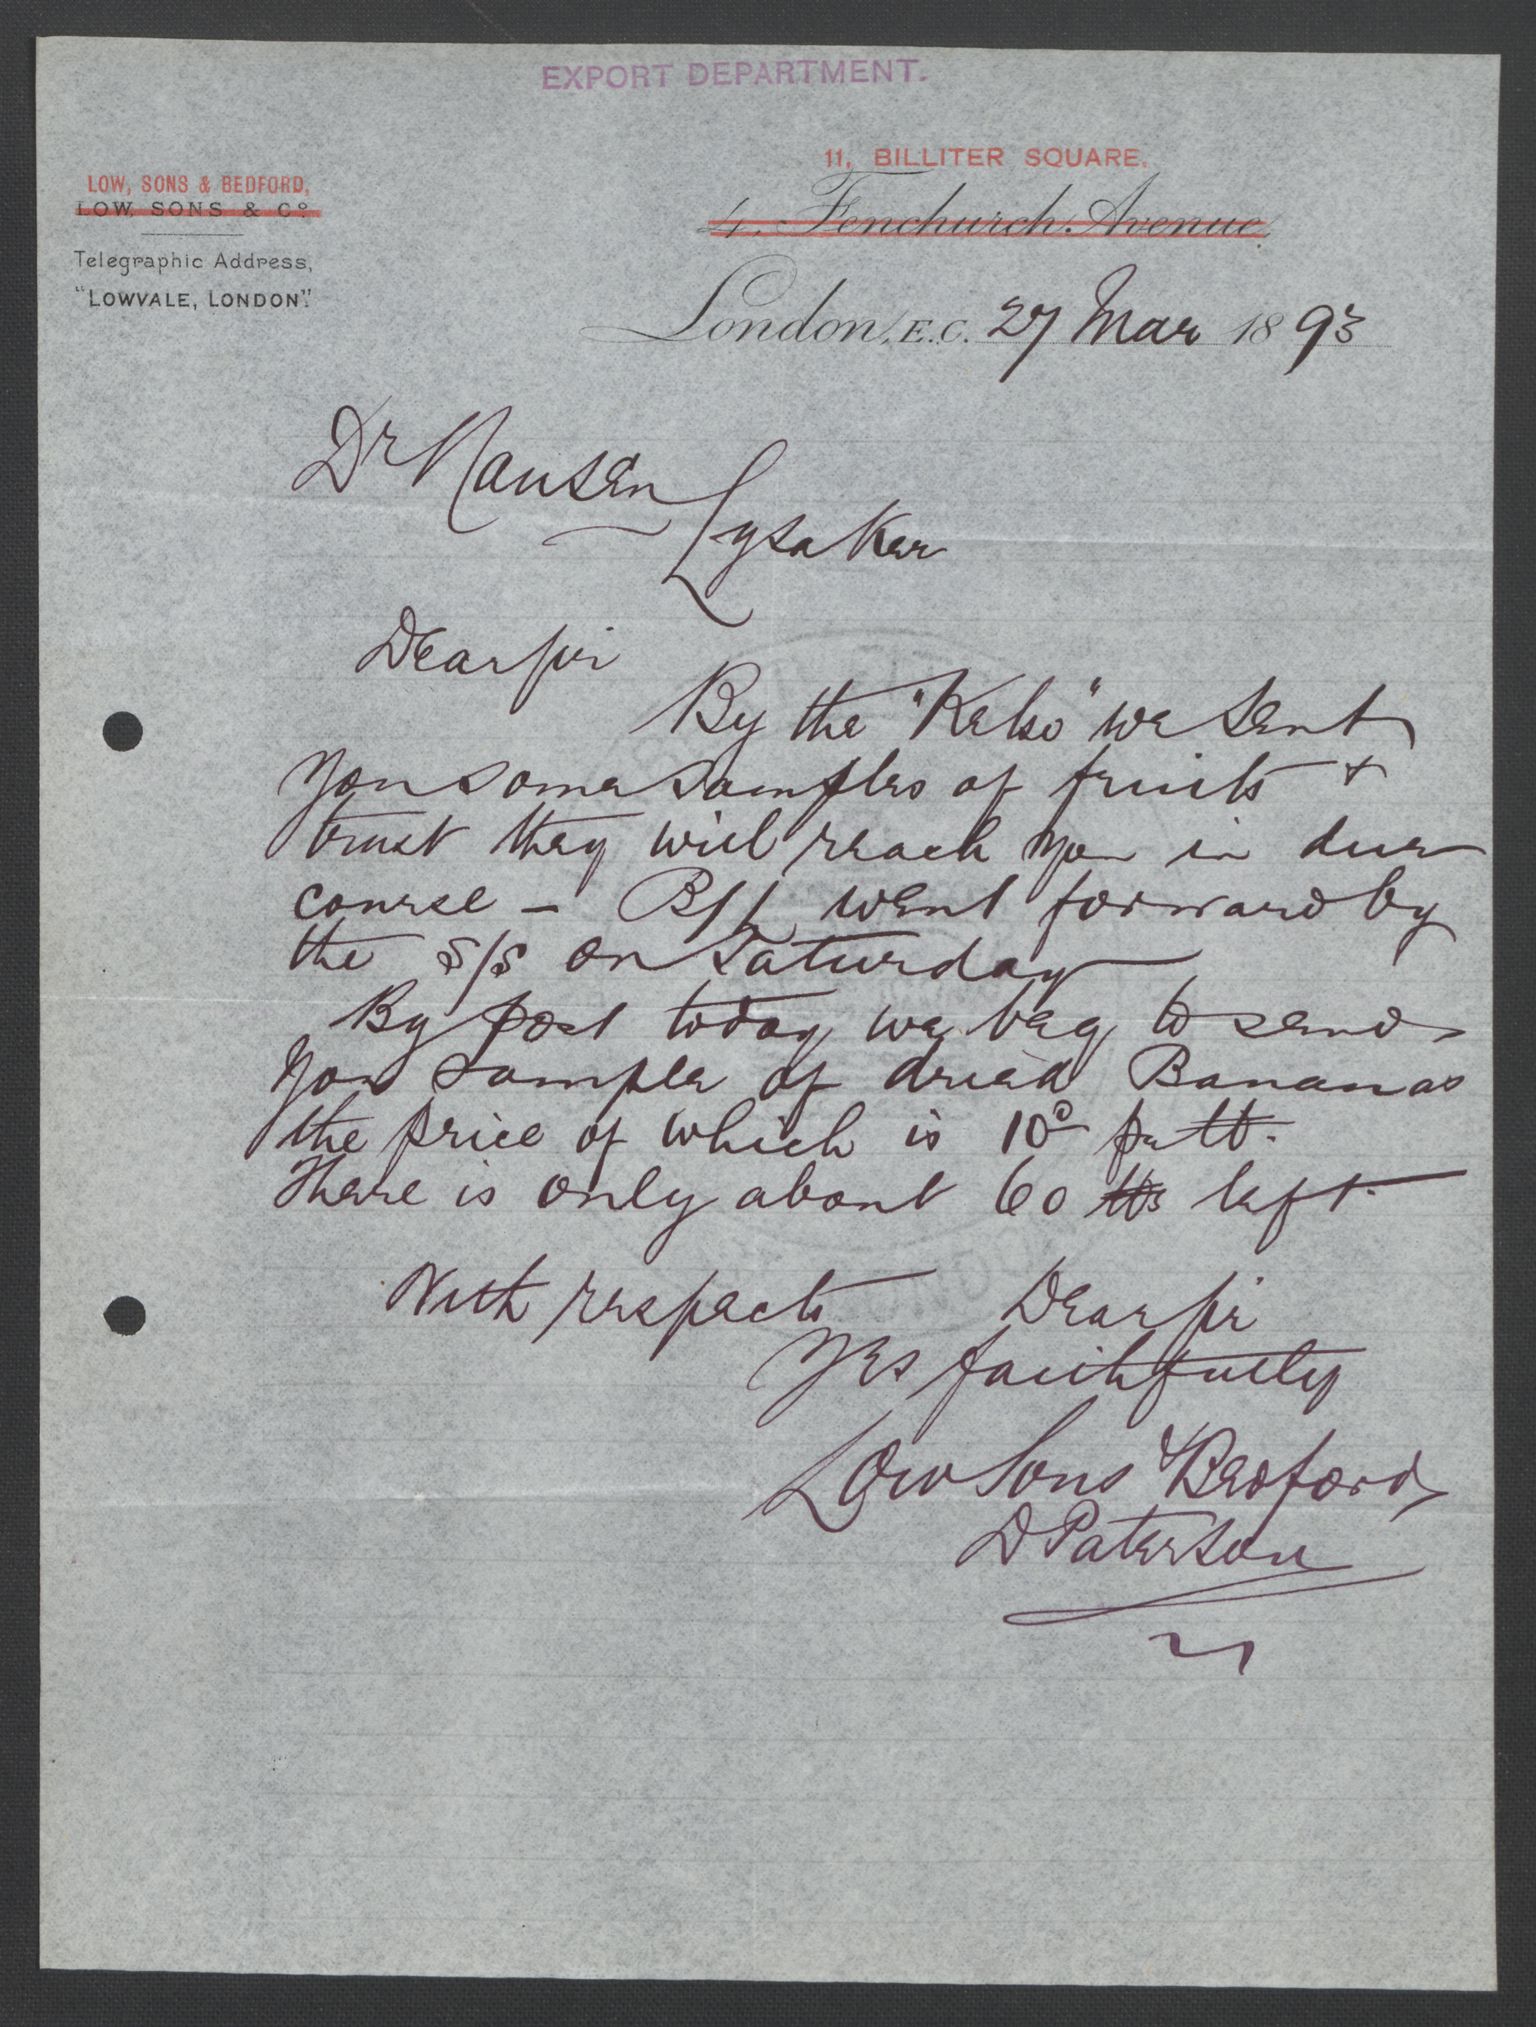 EXPORT DEPARTMENT.
LOW, SONS & BEDFORD,
LOW, SONS & Co.
Telegraphic Address,
"LOWVALE, LONDON".
11, BILLITER SQUARE.
4, Fenchurch Avenue,
London, E.C. 27 Mar 1893
Dr Nansen
Lysaker
Dear Sir
By the "Kelso" we sent
you some samples of fruits &
trust they will reach you in due
course - B/L went forward by
the S/S on Saturday
By post today we beg to send
you sample of dried Bananas
the price of which is 10d p lb.
There is only about 60 lbs left
With respects Dear Sir
Yrs faithfully
Low Sons & Bedford
D Paterson